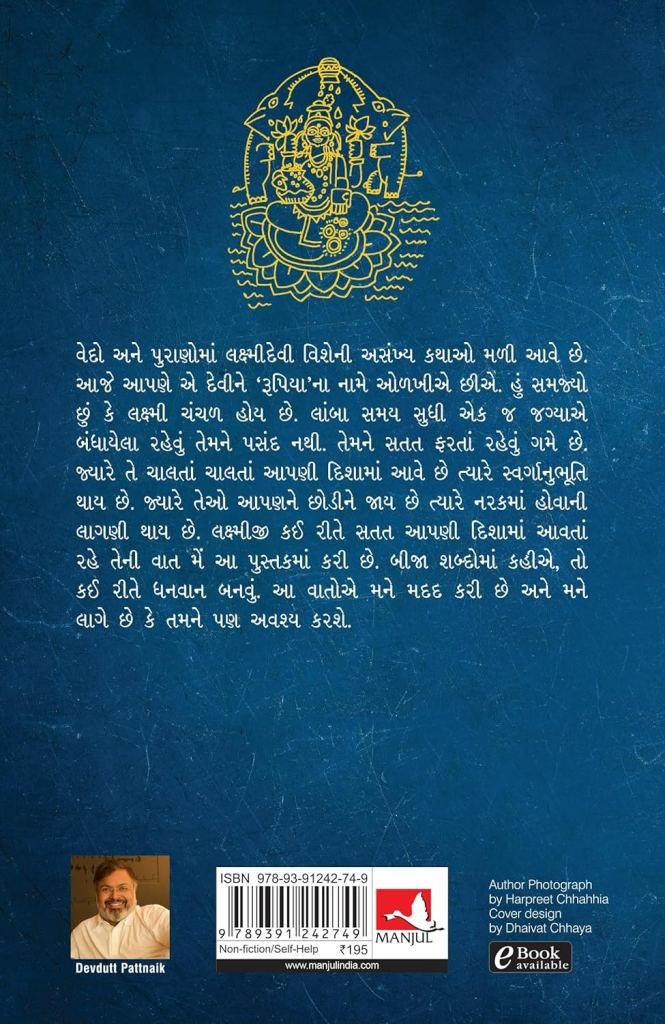 વેદો અને પુરાણોમાં લક્ષ્મીદેવી વિશેની અસંખ્ય કથાઓ મળી આવે છે.
આજે આપણે એ દેવીને ‘રૂપિયા’ના નામે ઓળખીએ છીએ. હું સમજ્યો
છું કે લક્ષ્મી ચંચળ હોય છે. લાંબા સમય સુધી એક જ જગ્યાએ
બંધાયેલા રહેવું તેમને પસંદ નથી. તેમને સતત ફરતાં રહેવું ગમે છે.
જ્યારે તે ચાલતાં ચાલતાં આપણી દિશામાં આવે છે ત્યારે સ્વર્ગાનુભૂતિ
થાય છે. જ્યારે તેઓ આપણને છોડીને જાય છે ત્યારે નરકમાં હોવાની
લાગણી થાય છે. લક્ષ્મીજી કઈ રીતે સતત આપણી દિશામાં આવતાં
રહે તેની વાત મેં આ પુસ્તકમાં કરી છે. બીજા શબ્દોમાં કહીએ, તો
કઈ રીતે ધનવાન બનવું. આ વાતોએ મને મદદ કરી છે અને મને
લાગે છે કે તમને પણ અવશ્ય કરશે.
Devdutt Pattnaik
ISBN 978-93-91242-74-9
9 789391 242749
Non-fiction/Self-Help ₹195
MANJUL
www.manjulindia.com
Author Photograph
by Harpreet Chhahhia
Cover design
by Dhaivat Chhaya
eBook
available